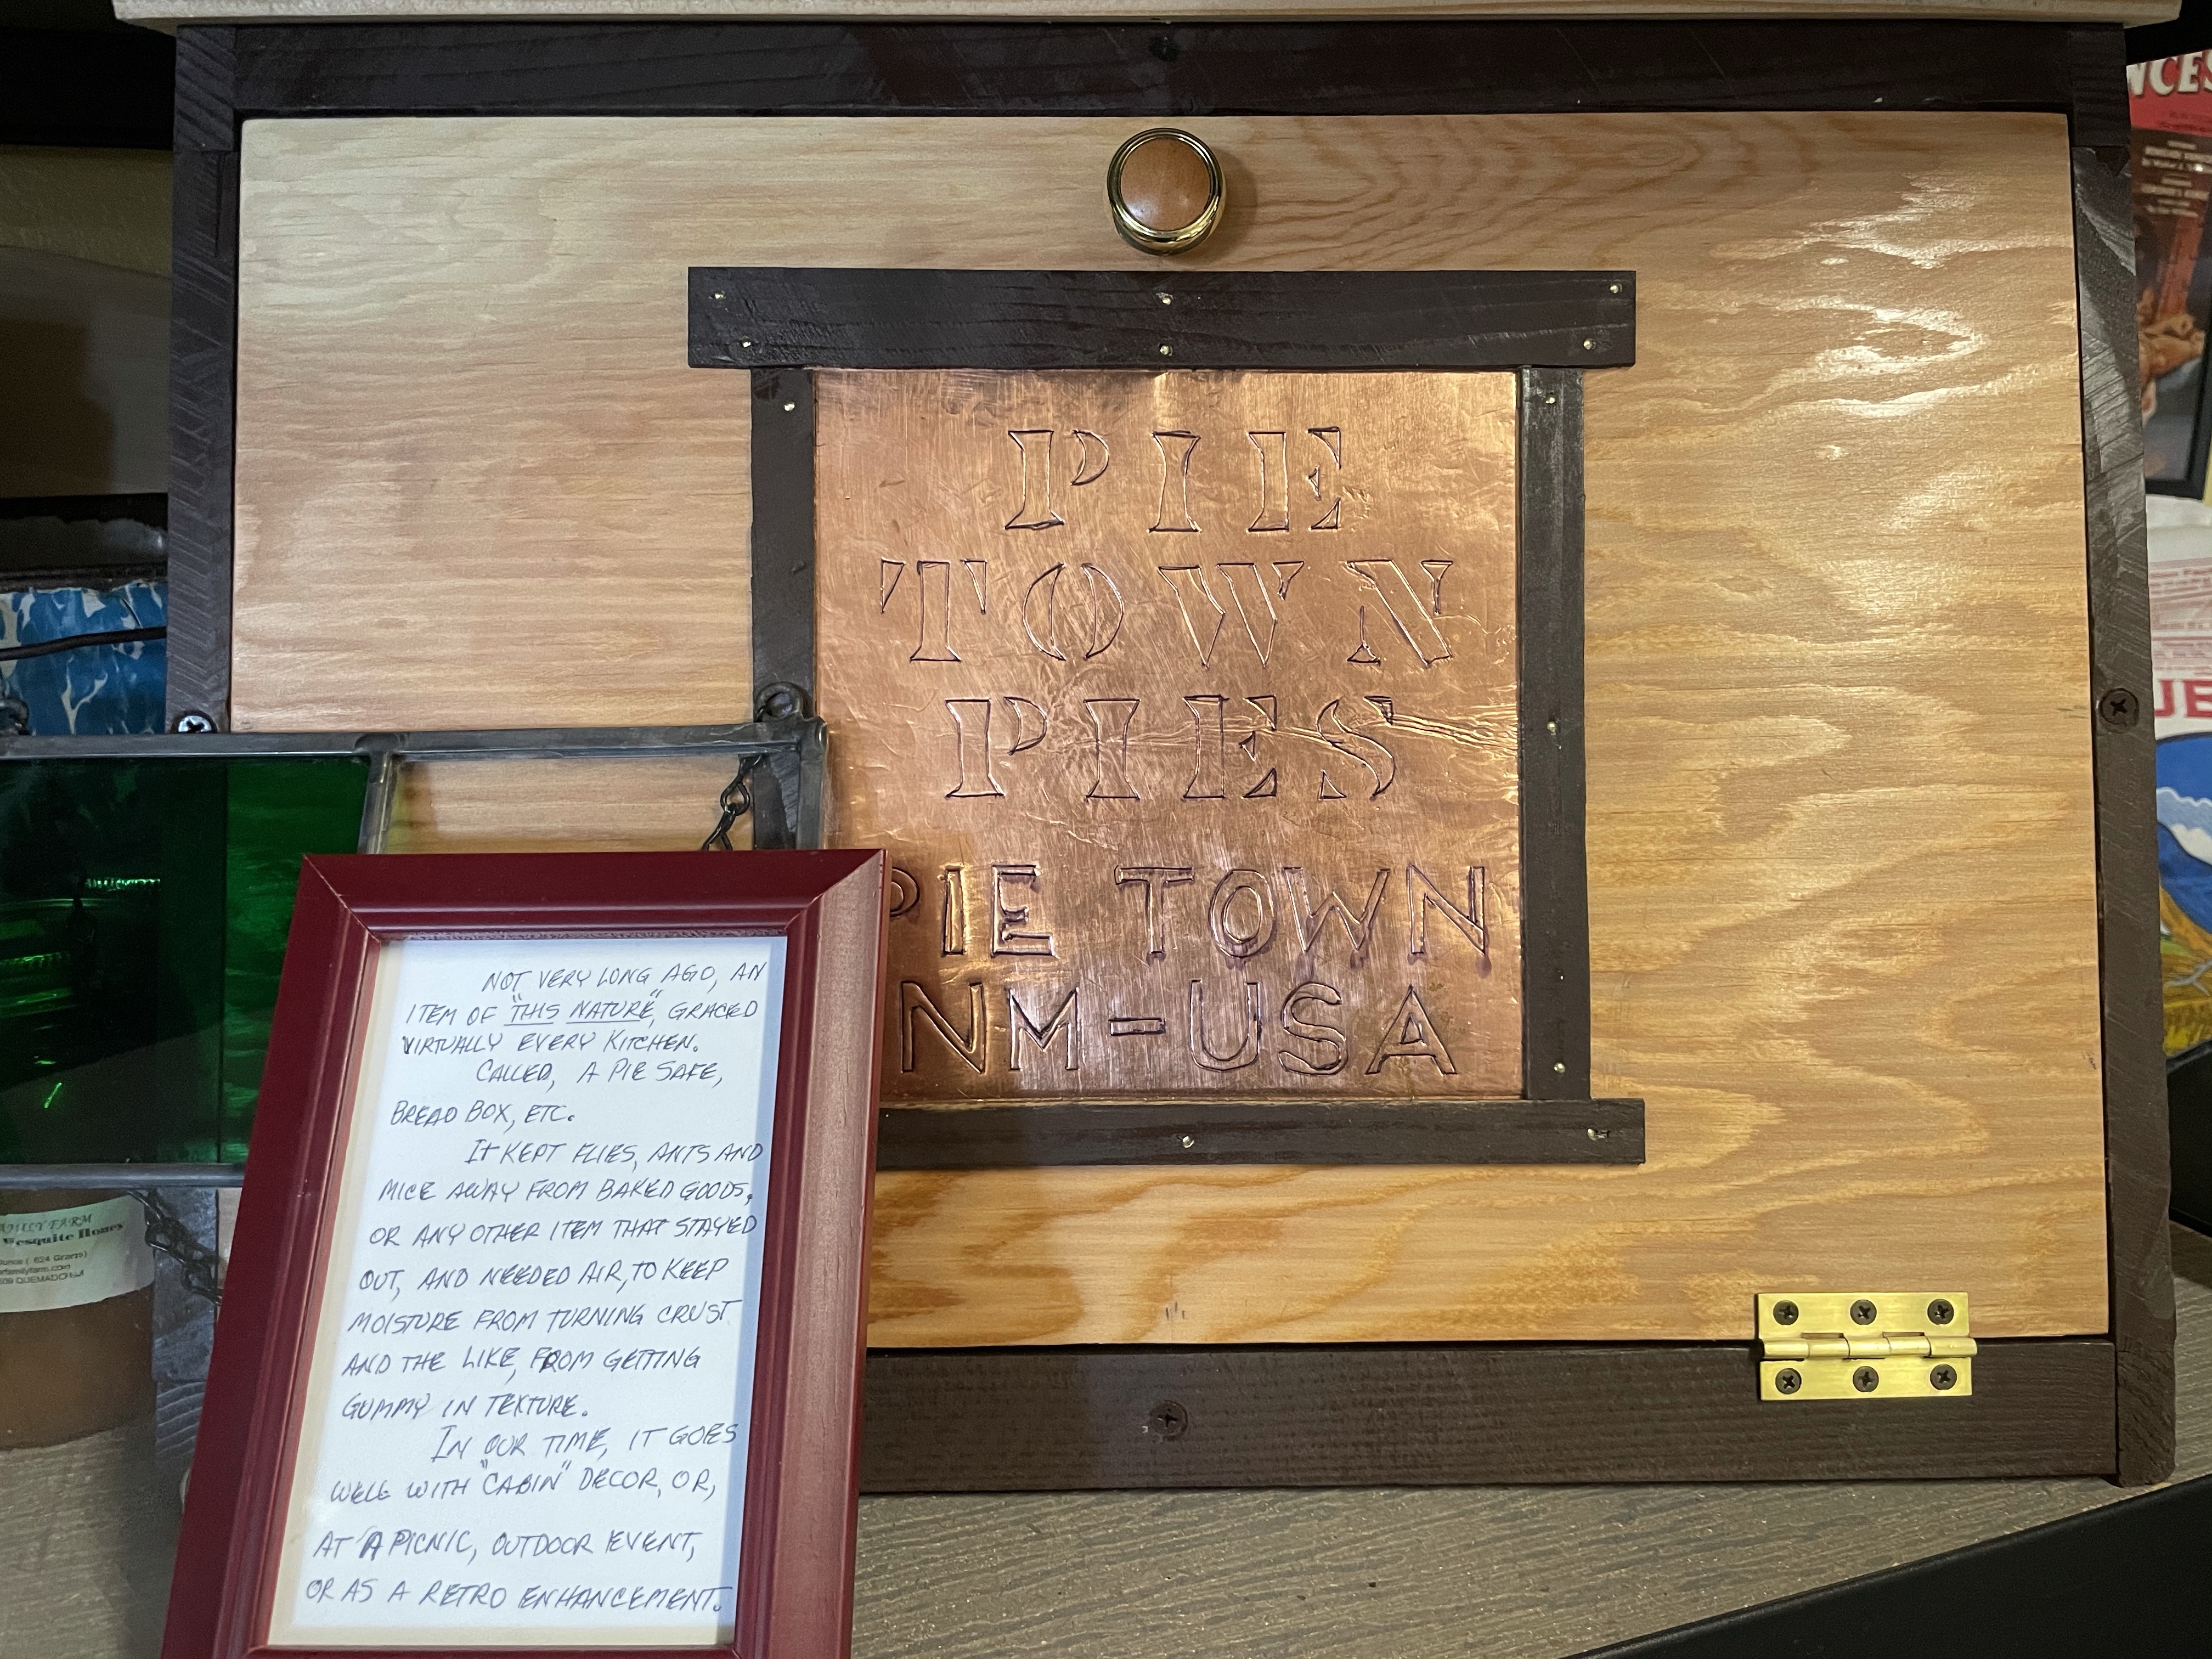 PIE
TOWN
PIES
PIE TOWN
NM-USA
NOT VERY LONG AGO, AN
ITEM OF "THIS NATURE", GRACED
VIRTUALLY EVERY KITCHEN.
CALLED, A PIE SAFE,
BREAD BOX, ETC.
It KEPT FLIES, ANTS AND
MICE AWAY FROM BAKED GOODS,
OR ANY OTHER ITEM THAT STAYED
OUT, AND NEEDED AIR, TO KEEP
MOISTURE FROM TURNING CRUST
AND THE LIKE, FROM GETTING
GUMMY IN TEXTURE.
IN OUR TIME, IT GOES
WELL WITH "CABIN" DECOR, OR,
AT A PICNIC, OUTDOOR EVENT,
OR AS A RETRO ENHANCEMENT.
FARM
624 Grams)
QUEMADO